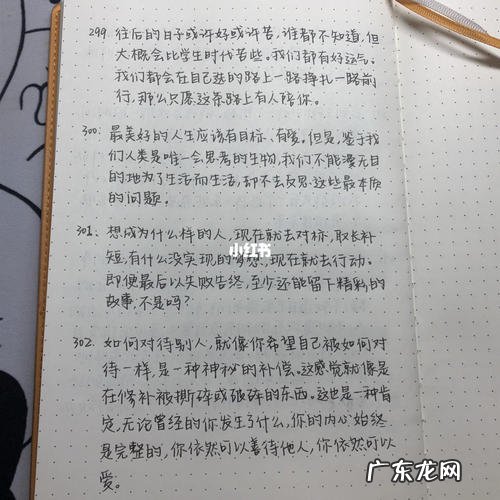 299. 往后的日子或许好或许苦，谁都不知道，但
大概会比学生时代苦些。我们都有好运气。
我们都会在自己选的路上一路挣扎一路前
行，那么只愿这条路上有人陪你。
300. 最美好的人生应该有目标、有爱。但是，鉴于我
们人类是唯一会思考的生物，我们不能漫无目
的地为了生活而生活，却不去反思这些最本质
的问题。
301. 想成为什么样的人，现在就去对标，取长补
短，有什么没实现的梦想，现在就去行动。
即便最后以失败告终，至少还能留下精彩的
故事，不是吗？
小红书
302. 如何对待别人，就像你希望自己被如何对
待一样，是一种神秘的补偿。这感觉就像是
在修补被撕碎或破碎的东西。这也是一种肯
定，无论曾经的你发生了什么，你的内心始终
是完整的，你依然可以善待他人，你依然可以
爱。
广东龙网